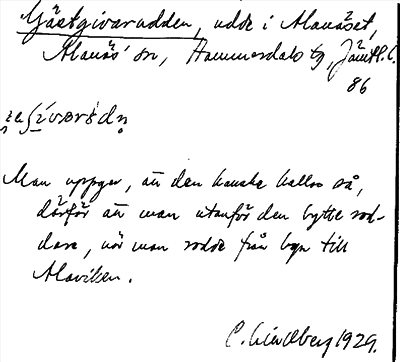 Gästgivarudden, udde i Alanäset,
Alanäs' sn, Hammerdals tg, Jämtl. l.
86
Man uppger, att den kanske kallas så,
därför att man utanför den bytte rod-
dare, när man rodde från byn till
Alaviken.
C. Lindberg 1929.